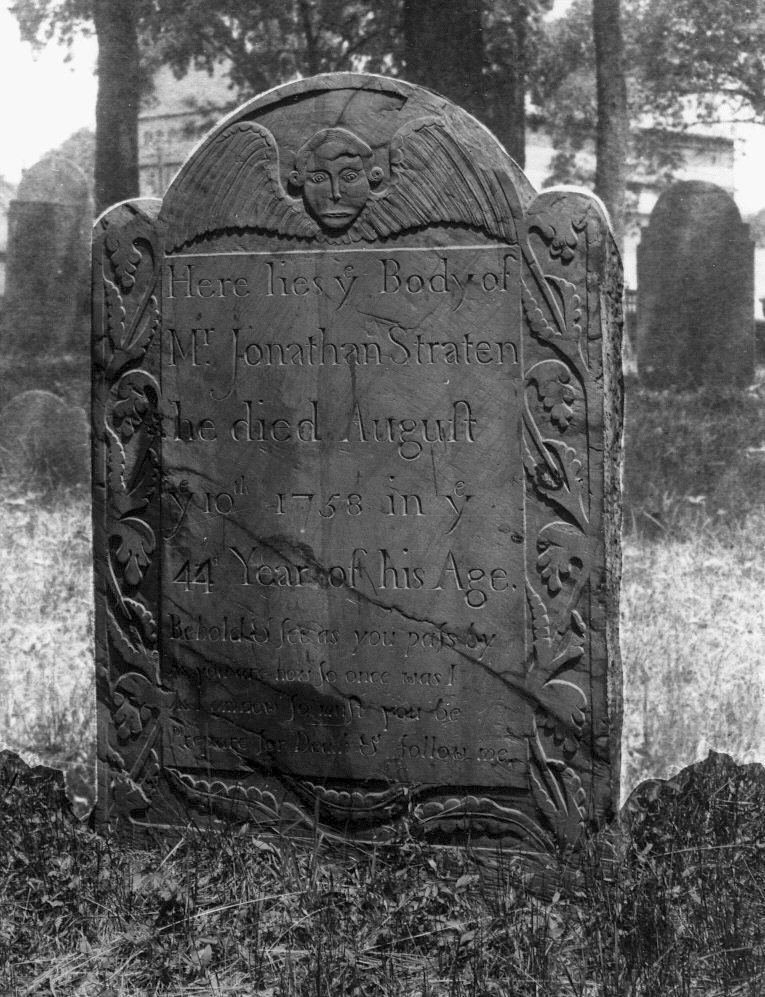 Here lies yͤ Body of
Mʳ. Jonathan Straten
he died Auguſt
yͤ 10ᵗʰ 1758 in yͤ
44ᵗ Year of his Age.
Behold & ſee as you paſs by
As you are now ſo once was I
As I am now ſo muſt you be
Prepare for Death & follow me